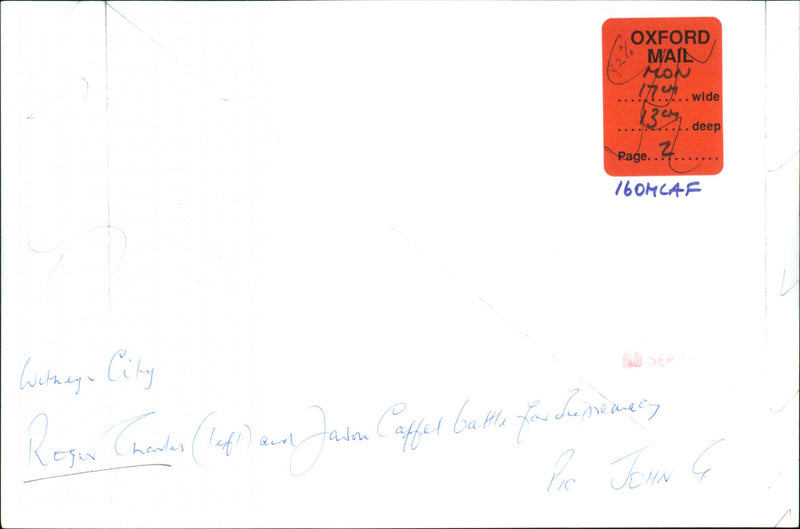 OXFORD
MAIL
82%
MON
17cm wide
13cm deep
Page 2
160MCAF
SEP
Witney v City
Roger Charles (left) and Jason Caffel battle for supremacy
Pic JOHN G